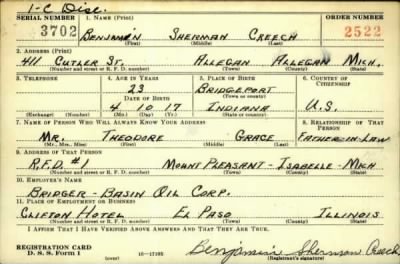 1-C Disc.
SERIAL NUMBER 1. NAME (Print) ORDER NUMBER
3702 BENJAMIN SHERMAN CREECH 2522
(First) (Middle) (Last)
2. ADDRESS (Print)
411 CUTLER ST. ALLEGAN ALLEGAN MICH.
(Number and street or R. F. D. number) (Town) (County) (State)
3. TELEPHONE 4. AGE IN YEARS 5. PLACE OF BIRTH 6. COUNTRY OF CITIZENSHIP
23 BRIDGEPORT
DATE OF BIRTH (Town or county)
4 10 17 INDIANA U.S.
(Exchange) (Number) (Mo.) (Day) (Yr.) (State or country)
7. NAME OF PERSON WHO WILL ALWAYS KNOW YOUR ADDRESS 8. RELATIONSHIP OF THAT PERSON
MR. THEODORE GRACE FATHER-IN-LAW
(Mr., Mrs., Miss) (First) (Middle) (Last)
9. ADDRESS OF THAT PERSON
R.F.D. #1 MOUNT PLEASANT - ISABELLE - MICH
(Number and street or R. F. D. number) (Town) (County) (State)
10. EMPLOYER'S NAME
BRIDGER - BASIN OIL CORP.
11. PLACE OF EMPLOYMENT OR BUSINESS
CLIFTON HOTEL EL PASO ILLINOIS
(Number and street or R. F. D. number) (Town) (County) (State)
I AFFIRM THAT I HAVE VERIFIED ABOVE ANSWERS AND THAT THEY ARE TRUE.
REGISTRATION CARD
D. S. S. Form 1 (over) Benjamin Sherman Creech
(Registrant's signature)